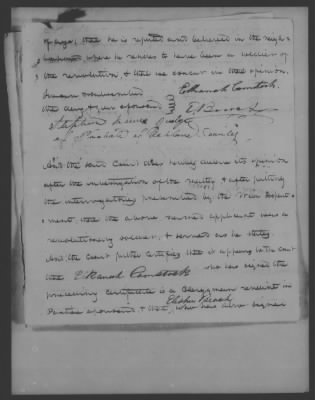 of age, that he is reputed and believed in the neigh-
borhood where he resides to have been a soldier of
the revolution, & that we concur in that opinion.
Sworn & subscribed Elkanah Comstock.
the day & year aforesaid E.
Stephen Judge
of Probate of Oakland County

And the said Court do hereby declare its opinion
after the investigation of the matter, & after putting
the interrogatories prescribed by the War Depart-
ment, that the above named applicant was a
revolutionary soldier, & served as he states.
And the Court further certifies that it appears to the court
that Elkanah Comstock who has signed the
preceding certificate is a Clergyman resident in
Pontiac aforesaid & that Elisha Beach, who has also signed